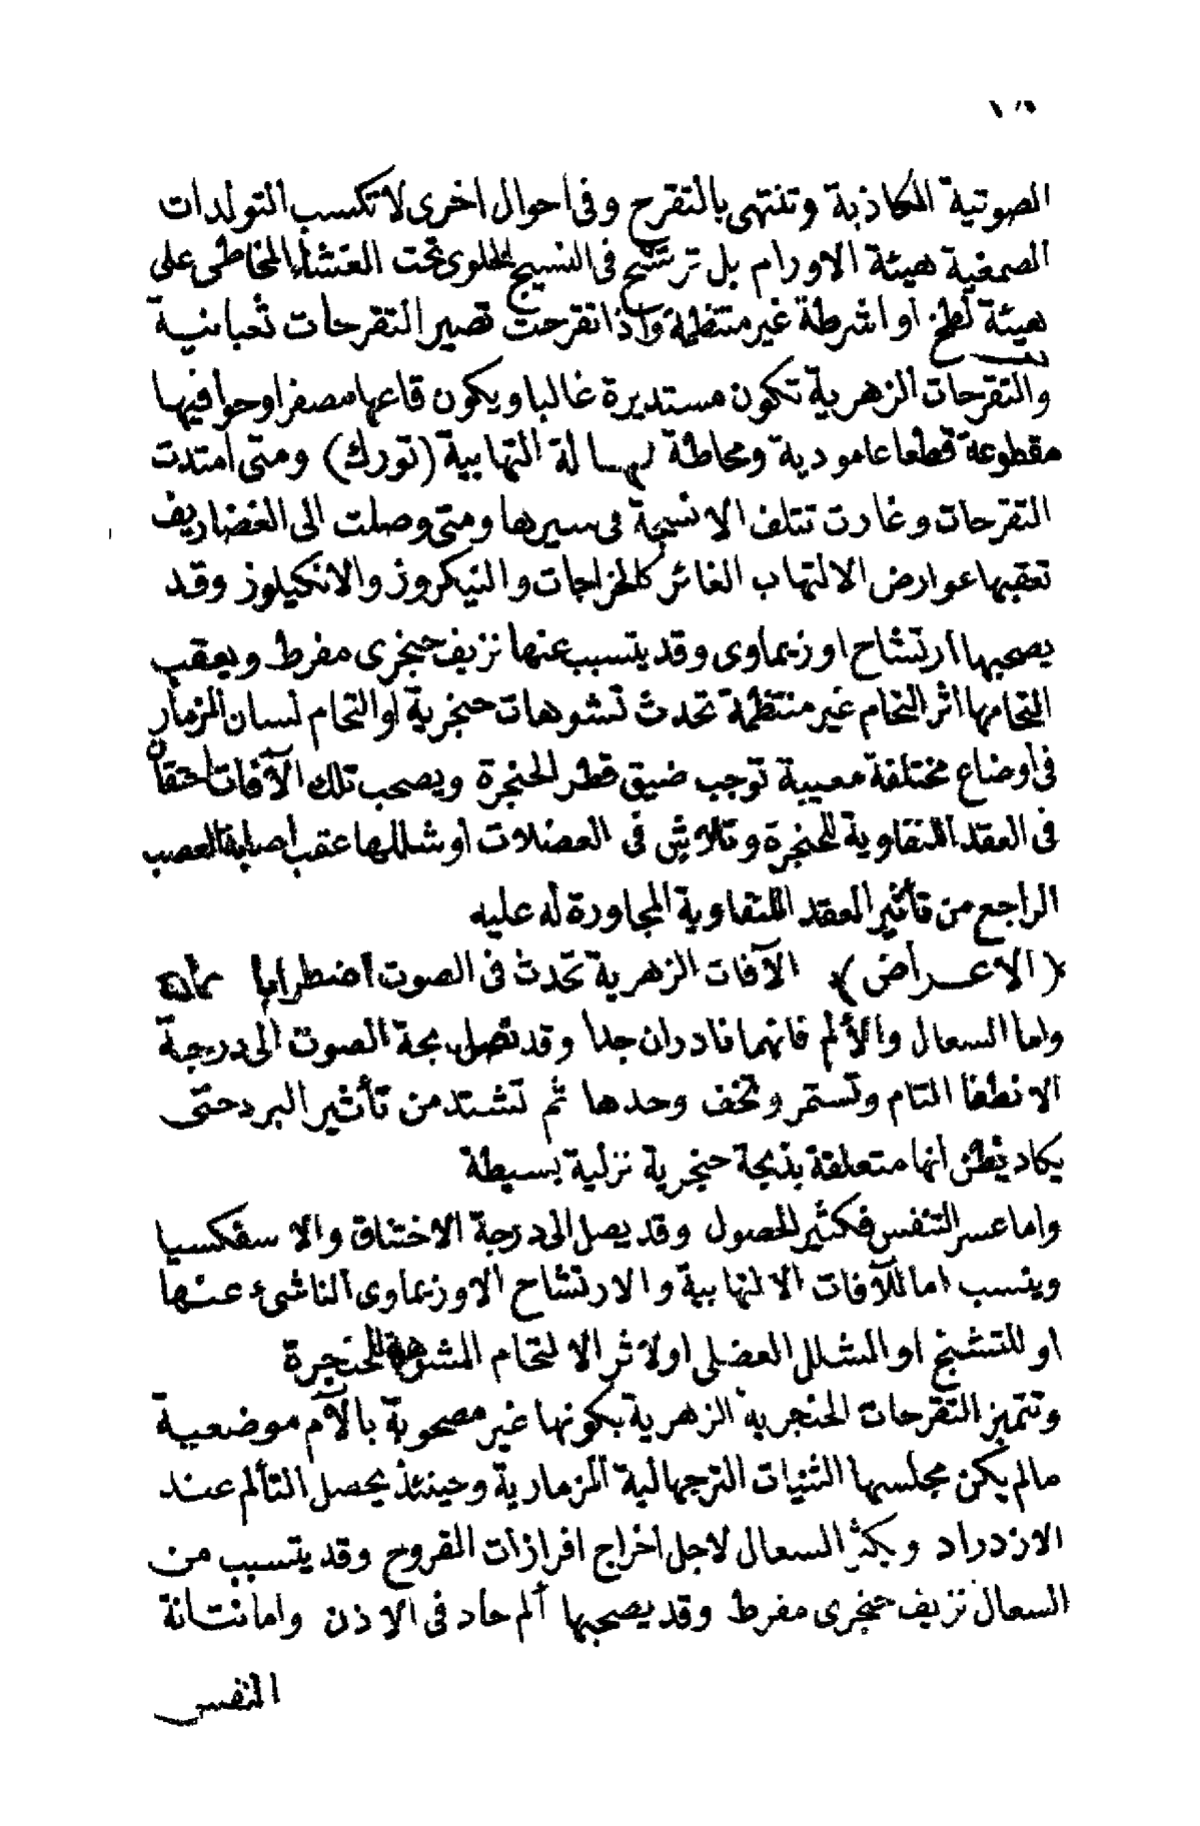 الصوتية الكاذبة وتنتهى بالتقرح وفى احوال اخرى لا تكسب التولدات
الصمغية هيئة الاورام بل ترتشح فى النسيج الخلوى تحت الغشاء المخاطى على
هيئة لطخ او اشرطة غير منتظمة واذا تقرحت تصير التقرحات ثعبانية
والتقرحات الزهرية تكون مستديرة غالبا ويكون قاعها مصفرا وحوافيها
مقطوعة قطعا عامودية ومحاطة بهالة التهابية (تورك) ومتى امتدت
التقرحات وغارت تتلف الانسجة فى سيرها ومتى وصلت الى الغضاريف
تعقبها عوارض الالتهاب الغائر كالخراجات والنيكروز والانكيلوز وقد
يصحبها ارتشاح اوزيماوى وقد يتسبب عنها نزيف حنجرى مفرط ويعقب
التحامها اثر التحام غير منتظمة تحدث تشوهات حنجرية او التحام لسان المزمار
فى اوضاع مختلفة معيبة توجب ضيق قطر الحنجرة ويصحب تلك الآفات احتقان
فى العقد اللنفاوية للحنجرة وتلاش فى العضلات أو شللها عقب اصابة العصب
الراجع من تأثير العقد اللنفاوية المجاورة له عليه
﴿الاعراض﴾ الآفات الزهرية تحدث فى الصوت اضطرابا
واما السعال والألم فانهما نادران جدا وقد تصل بحة الصوت الى درجة
الانطفا التام وتستمر وتخف وحدها ثم تشتد من تأثير البرد حتى
يكاد يظن انها متعلقة بذبحة حنجرية نزلية بسيطة
واما عسر التنفس فكثير الحصول وقد يصل الى درجة الاختناق والاسفكسيا
وينسب اما للآفات الالتهابية والارتشاح الاوزيماوى الناشئ عنها
او للتشنج او الشلل العضلى او لاثر الالتحام المشوهة للحنجرة
وتتميز التقرحات الحنجرية الزهرية بكونها غير مصحوبة بالآم موضعية
مالم يكن مجلسها الثنيات الترجهالية المزمارية وحينئذ يحصل التألم عند
الازدراد ويكثر السعال لاجل اخراج افرازات القروح وقد يتسبب من
السعال نزيف حنجرى مفرط وقد يصحبها ألم حاد فى الاذن واما نتانة
النفس